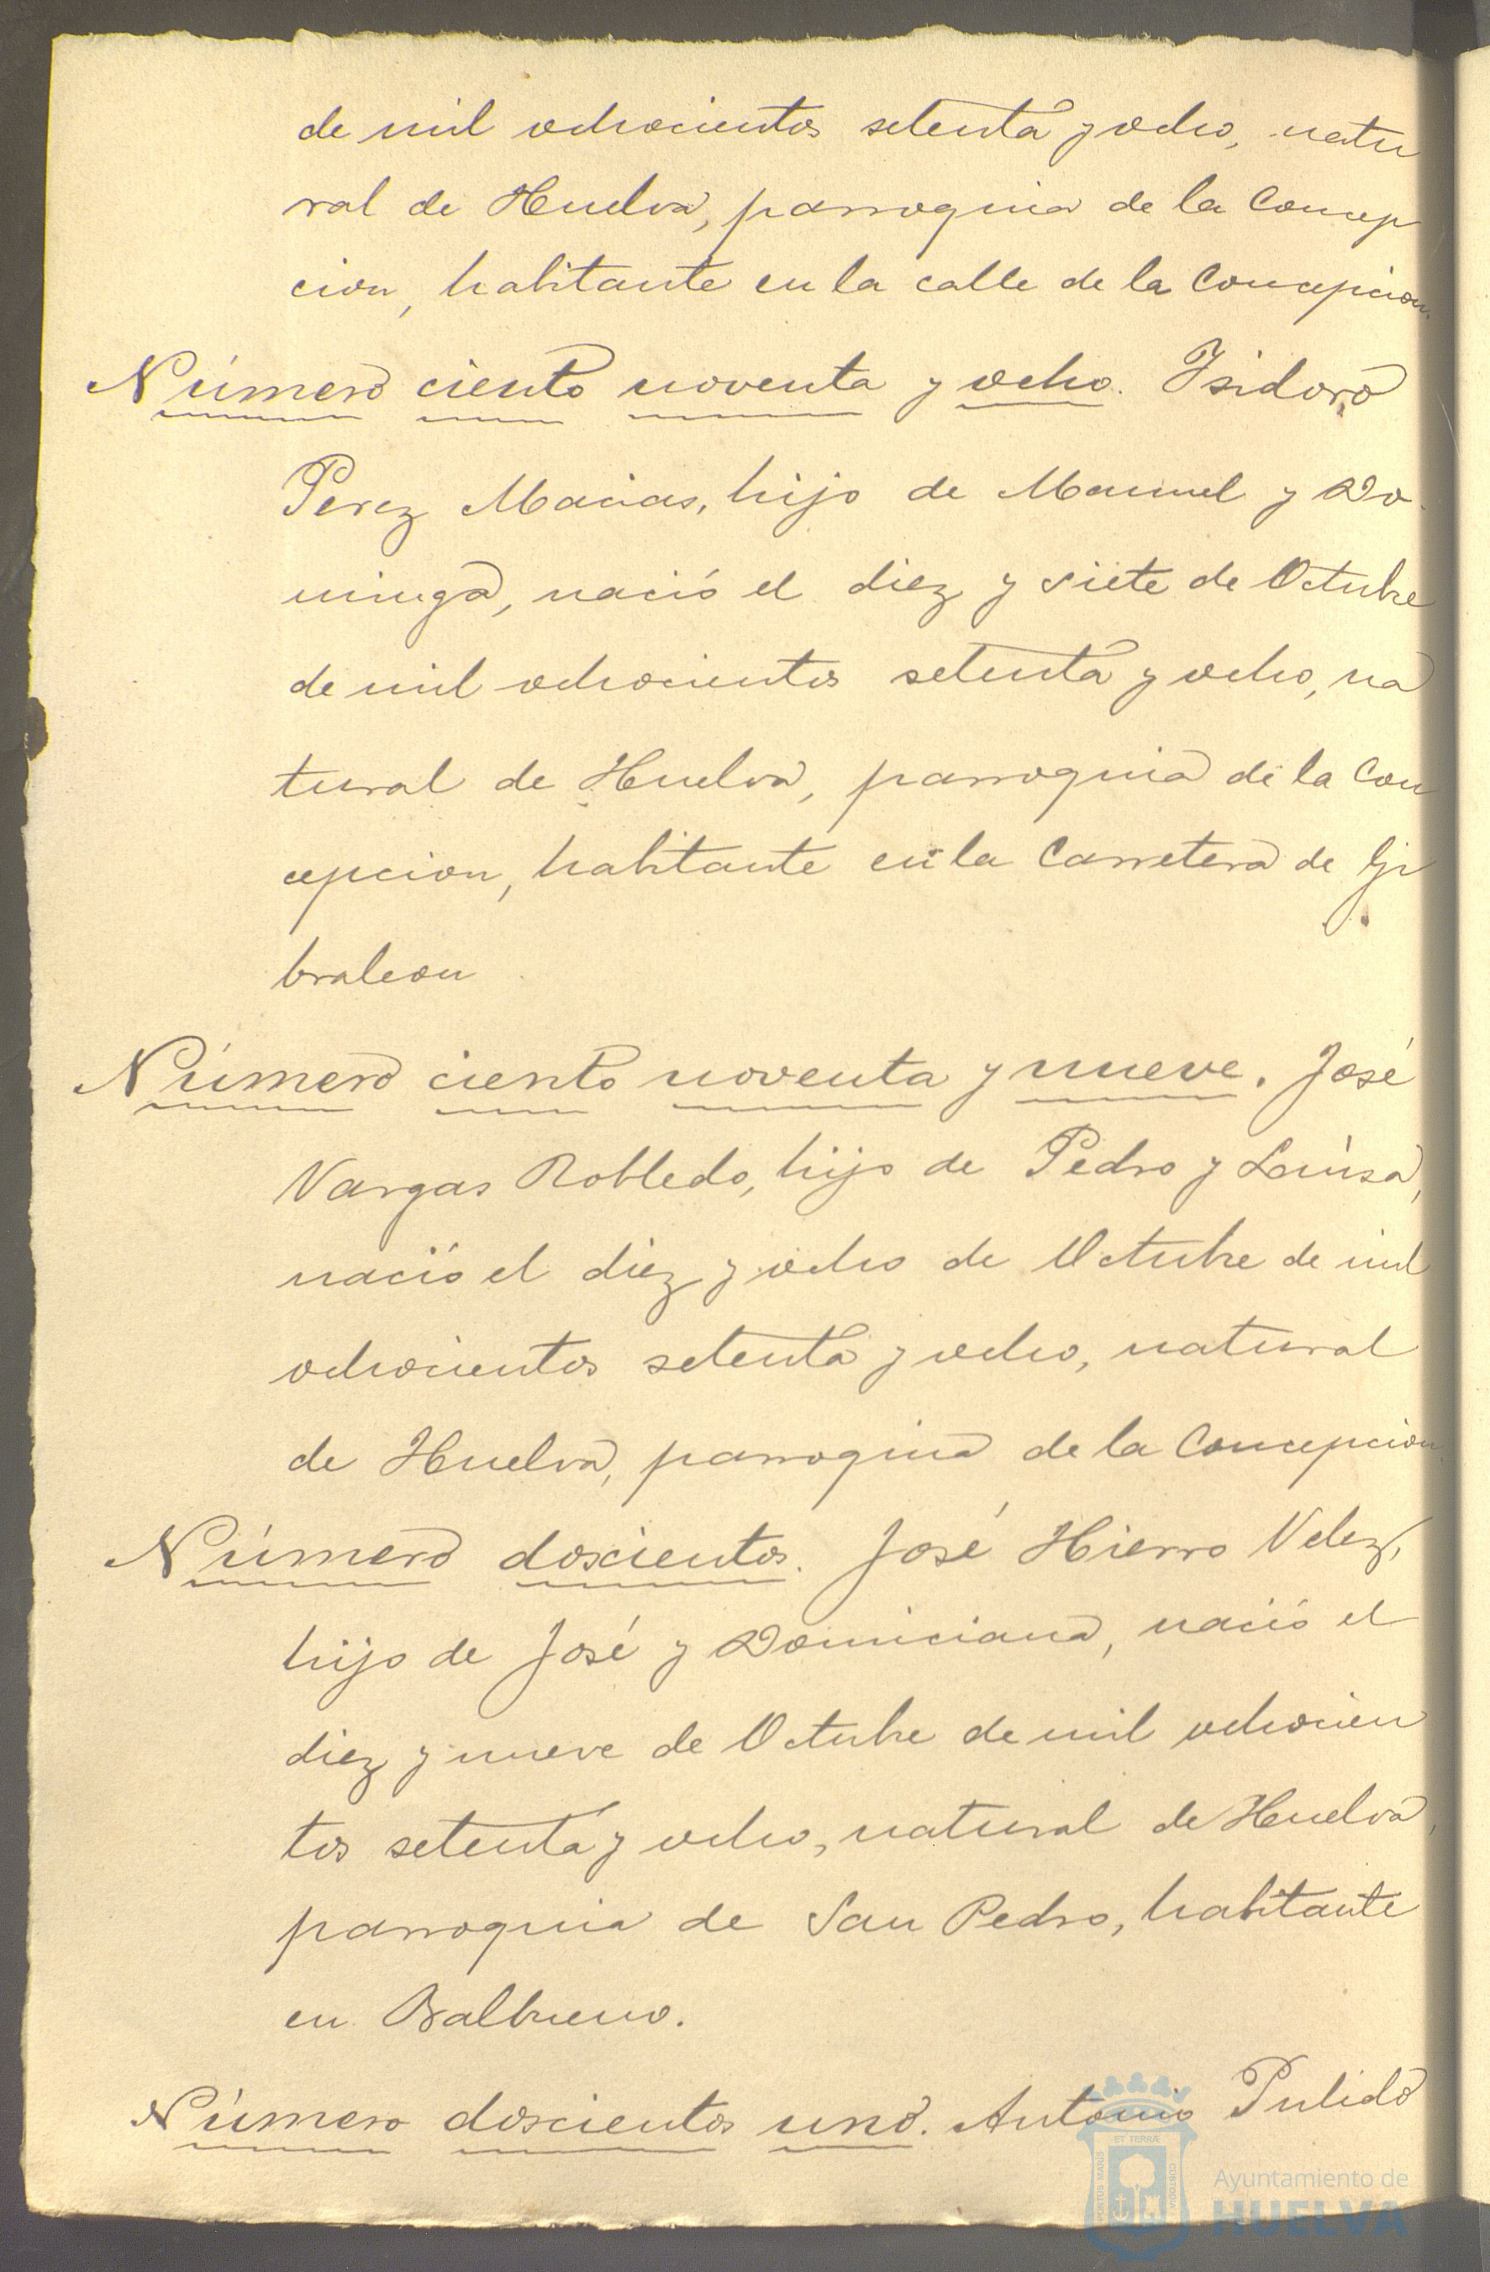 de mil ochocientos setenta y ocho, natu
ral de Huelva, parroquia de la Concep
cion, habitante en la calle de la Concepcion.
Número ciento noventa y ocho. Isidoro
Perez Macias, hijo de Manuel y Do
minga, nació el diez y siete de Octubre
de mil ochocientos setenta y ocho, na
tural de Huelva, parroquia de la Con
cepcion, habitante en la Carretera de Gi
braleon
Número ciento noventa y nueve. José
Vargas Robledo, hijo de Pedro y Luisa,
nació el diez y ocho de Octubre de mil
ochocientos setenta y ocho, natural
de Huelva, parroquia de la Concepcion
Número doscientos. José Hierro Velez,
hijo de José y Domiciana, nació el
diez y nueve de Octubre de mil ochocien
tos setenta y ocho, natural de Huelva,
parroquia de San Pedro, habitante
en Balbueno.
Número doscientos uno. Antonio Pulido
Ayuntamiento de
HUELVA